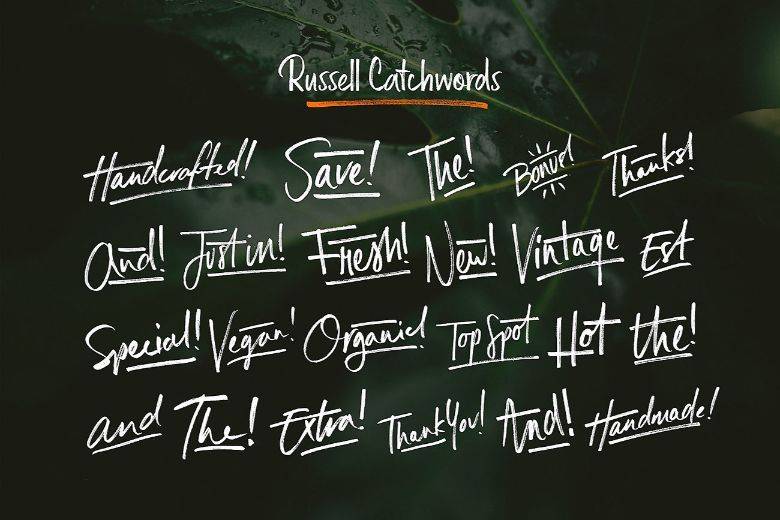 Russell Catchwords
Handcrafted! Save! The! Bonus! Thanks!
And! Just in! Fresh! New! Vintage Est
Special! Vegan! Organic! Top Spot Hot the!
and The! Extra! Thank You! And! Handmade!